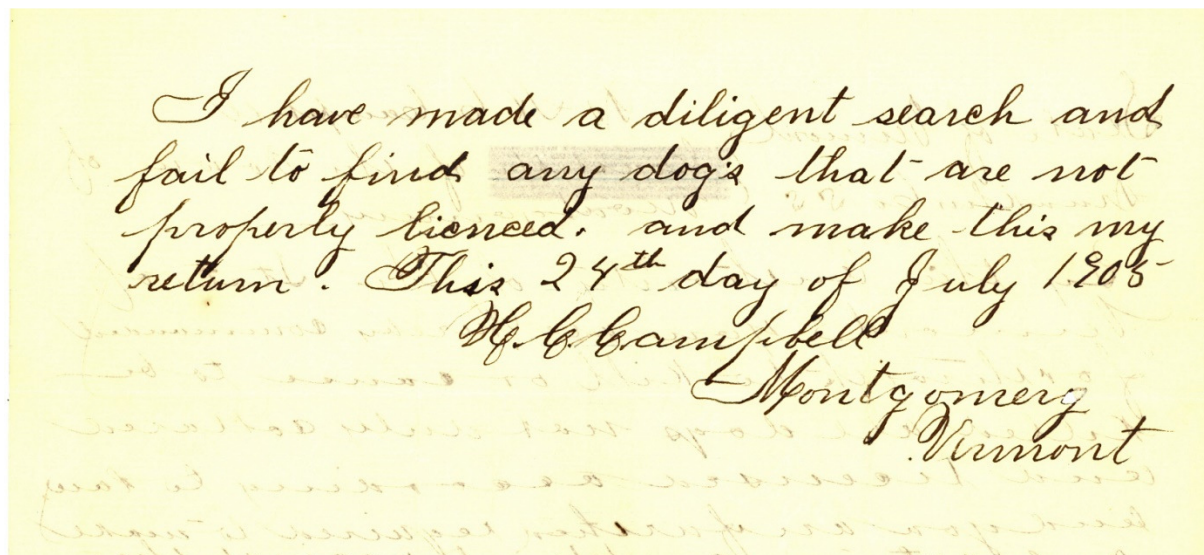 I have made a diligent search and
fail to find any dog's that are not
properly lienced. and make this my
return. This 24th day of July 1905
H. C. Campbell
Montgomery
Vermont